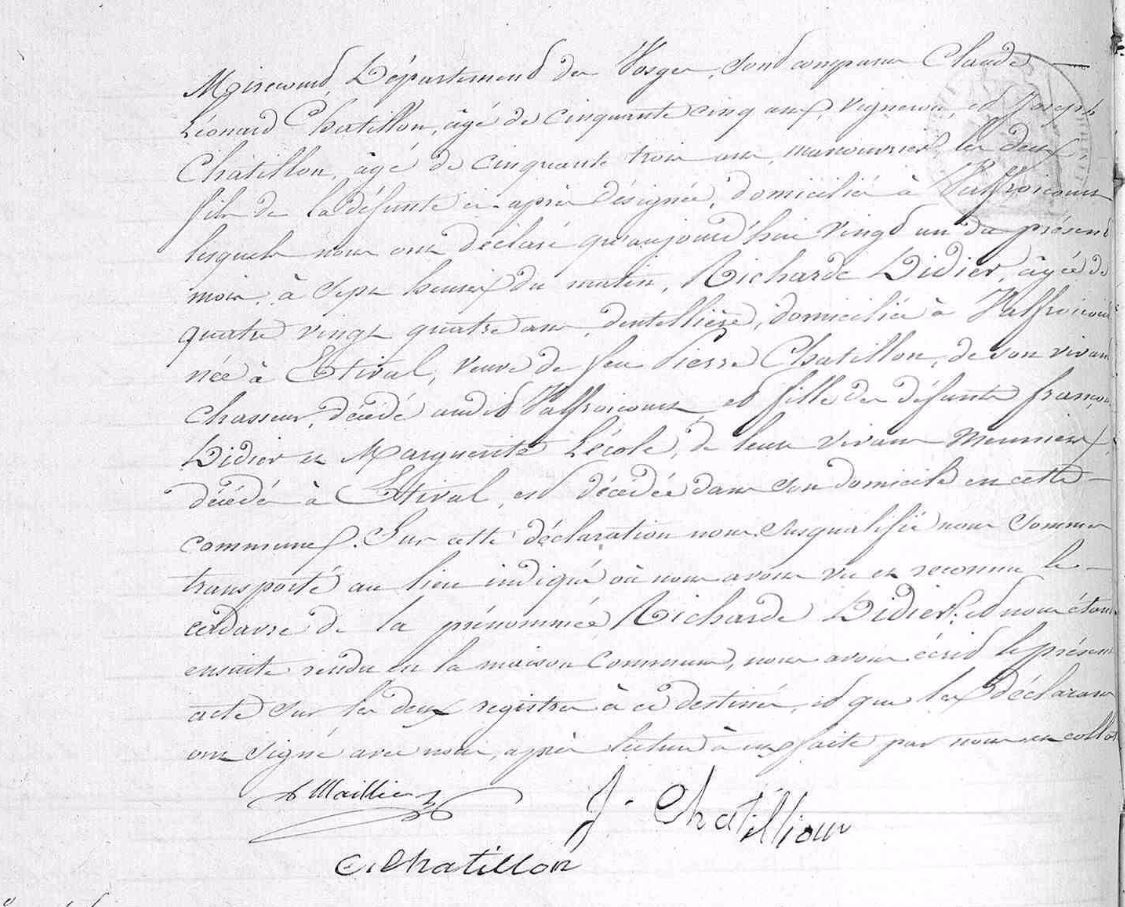 Mirecourt, Département des Vosges, sont comparus Claude
Léonard Chatillon, âgé de cinquante cinq ans, vigneron, et Joseph
Chatillon, âgé de cinquante trois ans, manouvrier, les deux
fils de la défunte ci-après désignée, domiciliés à Valfroicourt
lesquels nous ont déclaré qu'aujourd'hui vingt un du présent
mois, à sept heures du matin, Richarde Didier, âgée de
quatre vingt quatre ans, dentellière, domiciliée à Valfroicourt
née à Etival, veuve de feu Pierre Chatillon, de son vivant
chasseur, décédé audit Valfroicourt, et fille des défunts françois
Didier et Marguerite Lécole, de leur vivant meuniers,
décédés à Etival, est décédée dans son domicile en cette
commune. Sur cette déclaration nous susqualifié nous sommes
transporté au lieu indiqué où nous avons vu et reconnu le
cadavre de la prénommée Richarde Didier, et nous étant
ensuite rendu en la maison commune, nous avons écrit le présent
acte sur les deux registres à ce destinés, et que les déclarants
ont signé avec nous, après lecture à eux faite par nous
J. Chatilliour
C. Chatillon